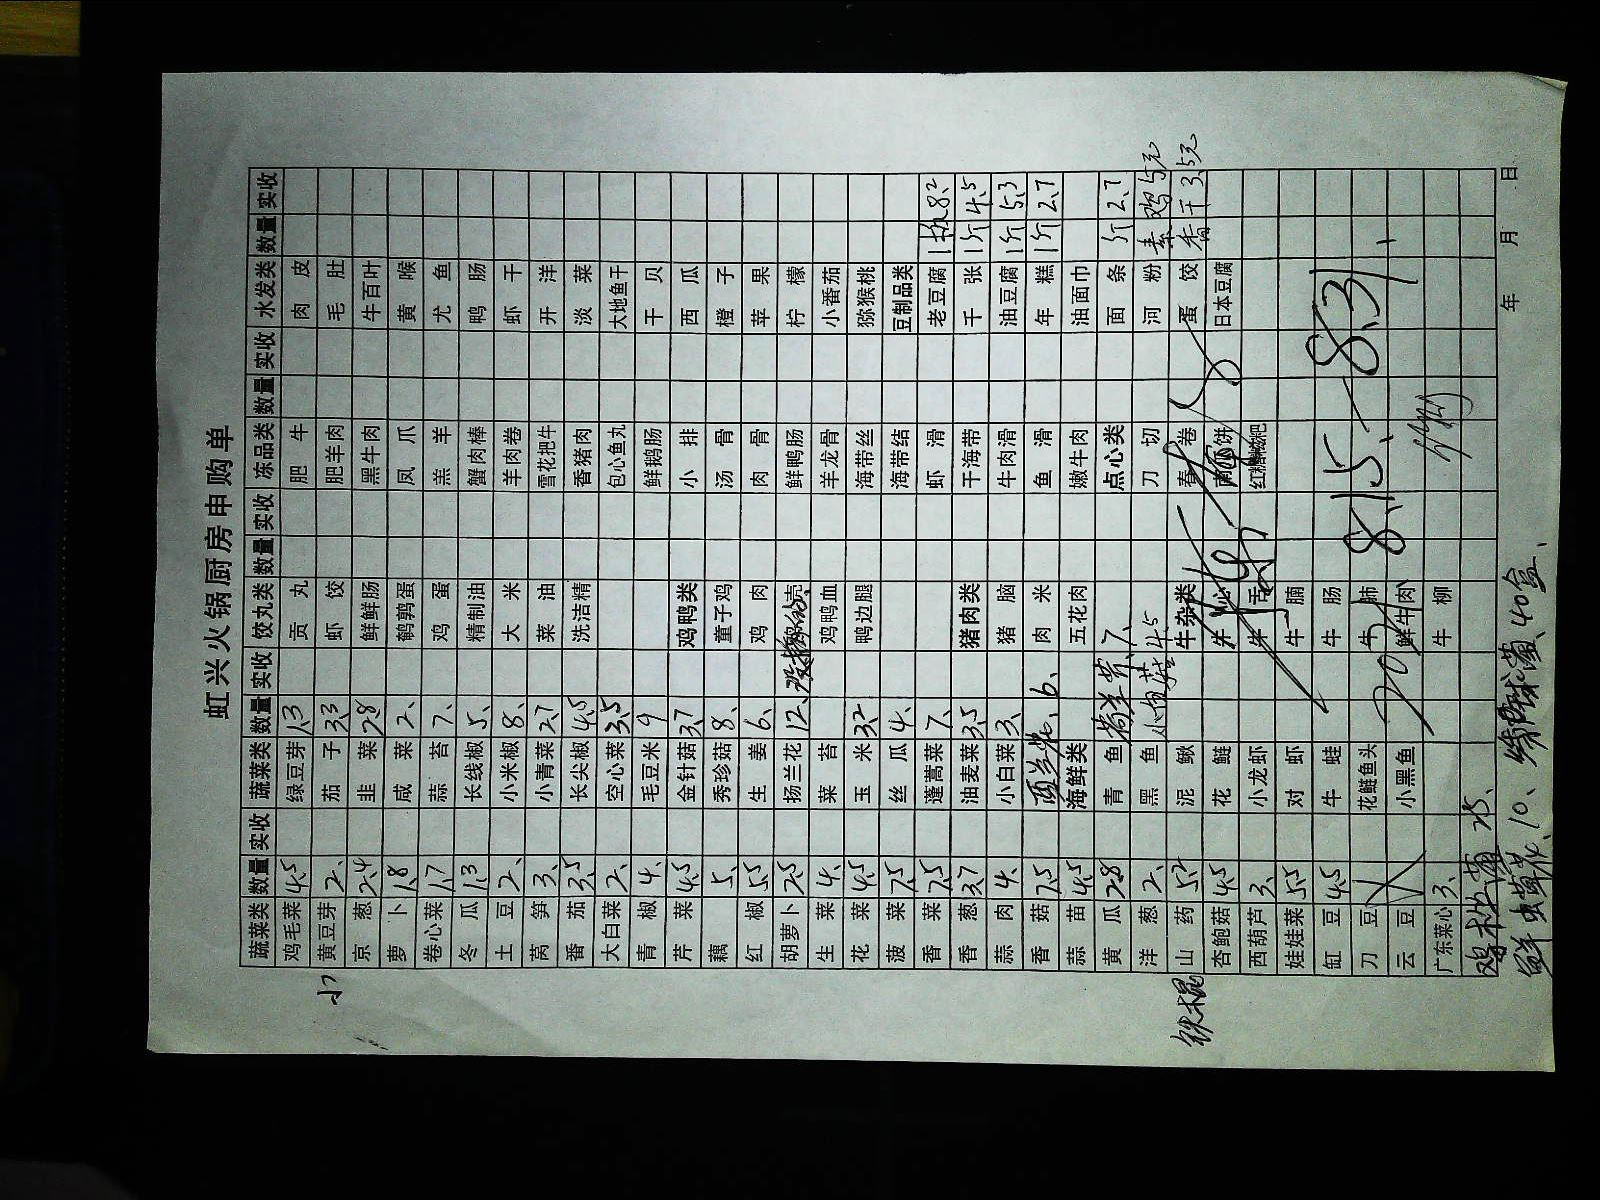 虹兴火锅厨房申购单
蔬菜类 数量 实收 蔬菜类 数量 实收 饺丸类 数量 实收 冻品类 数量 实收 水发类 数量 实收
鸡毛菜 4.5 绿豆芽 1.3 贡丸 肥牛 肉皮
小 黄豆芽 2、 茄子 3.3 虾饺 肥羊肉 毛肚
京葱 2.4 韭菜 2.8 鲜鲜肠 黑牛肉 牛百叶
萝卜 1.8 咸菜 2、 鹌鹑蛋 凤爪 黄喉
卷心菜 1.7 蒜苔 7、 鸡蛋 羔羊 尤鱼
冬瓜 1.3 长线椒 5、 精制油 蟹肉棒 鸭肠
土豆 2、 小米椒 8、 大米 羊肉卷 虾干
莴笋 3、 小青菜 2.7 菜油 雪花把牛 开洋
番茄 3.5 长尖椒 4.5 洗洁精 香猪肉 淡菜
大白菜 2、 空心菜 3.5 包心鱼丸 大地鱼干
青椒 4、 毛豆米 9 鲜鹅肠 干贝
芹菜 4.5 金针菇 3.7 鸡鸭类 小排 西瓜
藕 5、 秀珍菇 8、 童子鸡 汤骨 橙子
红椒 5.5 生姜 6、 鸡肉 肉骨 苹果
胡萝卜 2.5 扬兰花 12、 鲜鸭肠 柠檬
生菜 4、 菜苔 鸡鸭血 羊龙骨 小番茄
花菜 4.5 玉米 3.2 鸭边腿 海带丝 猕猴桃
菠菜 7.5 丝瓜 4、 海带结 豆制品类
香菜 7.5 蓬蒿菜 7、 虾滑 老豆腐 1板 8.2
香葱 3.7 油麦菜 3.5 猪肉类 干海带 千张 1斤 4.5
蒜肉 4、 小白菜 3、 猪脑 牛肉滑 油豆腐 1斤 5.3
香菇 7.5 西兰花 6、 肉米 鱼滑 年糕 1斤 2.7
蒜苗 4.5 海鲜类 五花肉 嫩牛肉 油面巾
黄瓜 2.8 青鱼 7、 点心类 面条 斤 2.7
洋葱 2、 黑鱼 4.5 刀切 河粉 素鸡 5元
铁棍 山药 5.2 泥鳅 牛杂类 春卷 蛋饺 香干 3.5元
杏鲍菇 4.5 花鲢 南瓜饼 日本豆腐
西葫芦 3、 小龙虾
娃娃菜 5.5 对虾 牛腩
缸豆 4.5 牛蛙 牛肠
刀豆 花鲢鱼头 牛肺
云豆 小黑鱼 鲜牛肉
广东菜心 3、 牛柳
8.15、—8.31
鲜虫草花、10、 40盒、
年 月 日